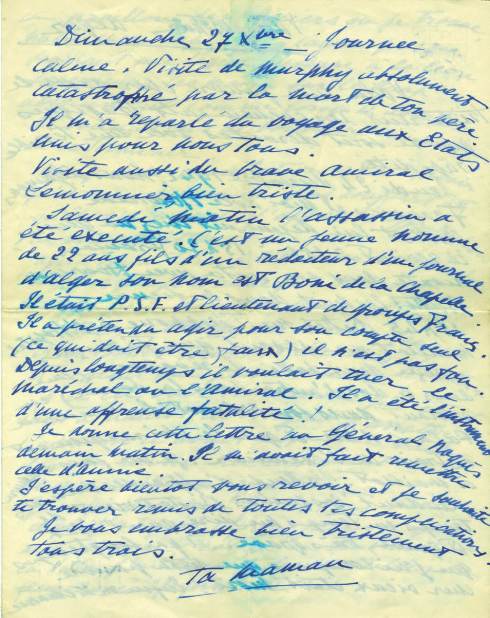 Dimanche 27 Xbre _ Journee
calme. Visite de Murphy absolument
catastrophé par la mort de ton père
Il m'a reparlé du voyage aux Etats
Unis pour nous tous.
Visite aussi du brave amiral
Lemonnier bien triste.
Samedi matin l'assassin a
été executé. C'est un jeune homme
de 22 ans fils d'un redacteur d'un journal
d'alger son nom est Boni de la Chapelle
Il était P.S.F. et lieutenant de groupes Franc.
Il a prétendu agir pour son compte seul
(ce qui doit être faux) il n'est pas fou.
Depuis longtemps il voulait tuer le
maréchal ou l'amiral. Il a été l'instrument
d'une affreuse fatalité!
Je donne cette lettre au Général Noguès
demain matin. Il m'avait fait remettre
celle d'
J'espère bientot vous revoir et je souhaite
te trouver remis de toutes tes complications.
Je vous embrasse bien tristement
tous trois.
Ta Maman